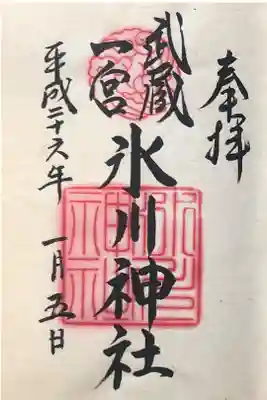 奉拝
武蔵
一宮
氷川神社
平成二十六年 一月五日